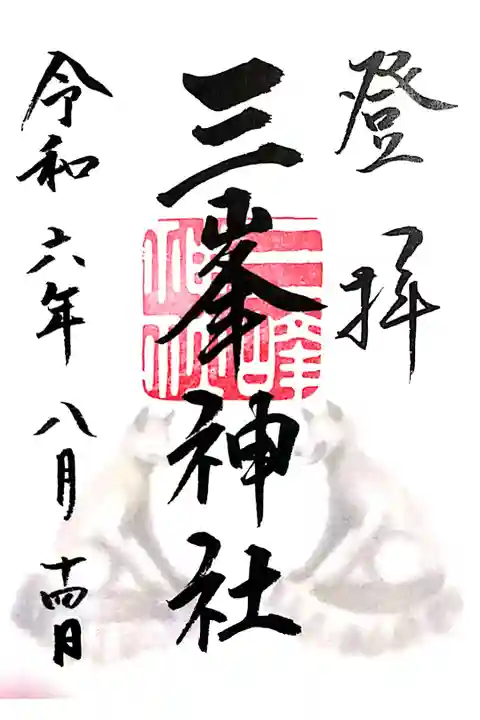 登拝
三峯神社
令和六年八月十四日